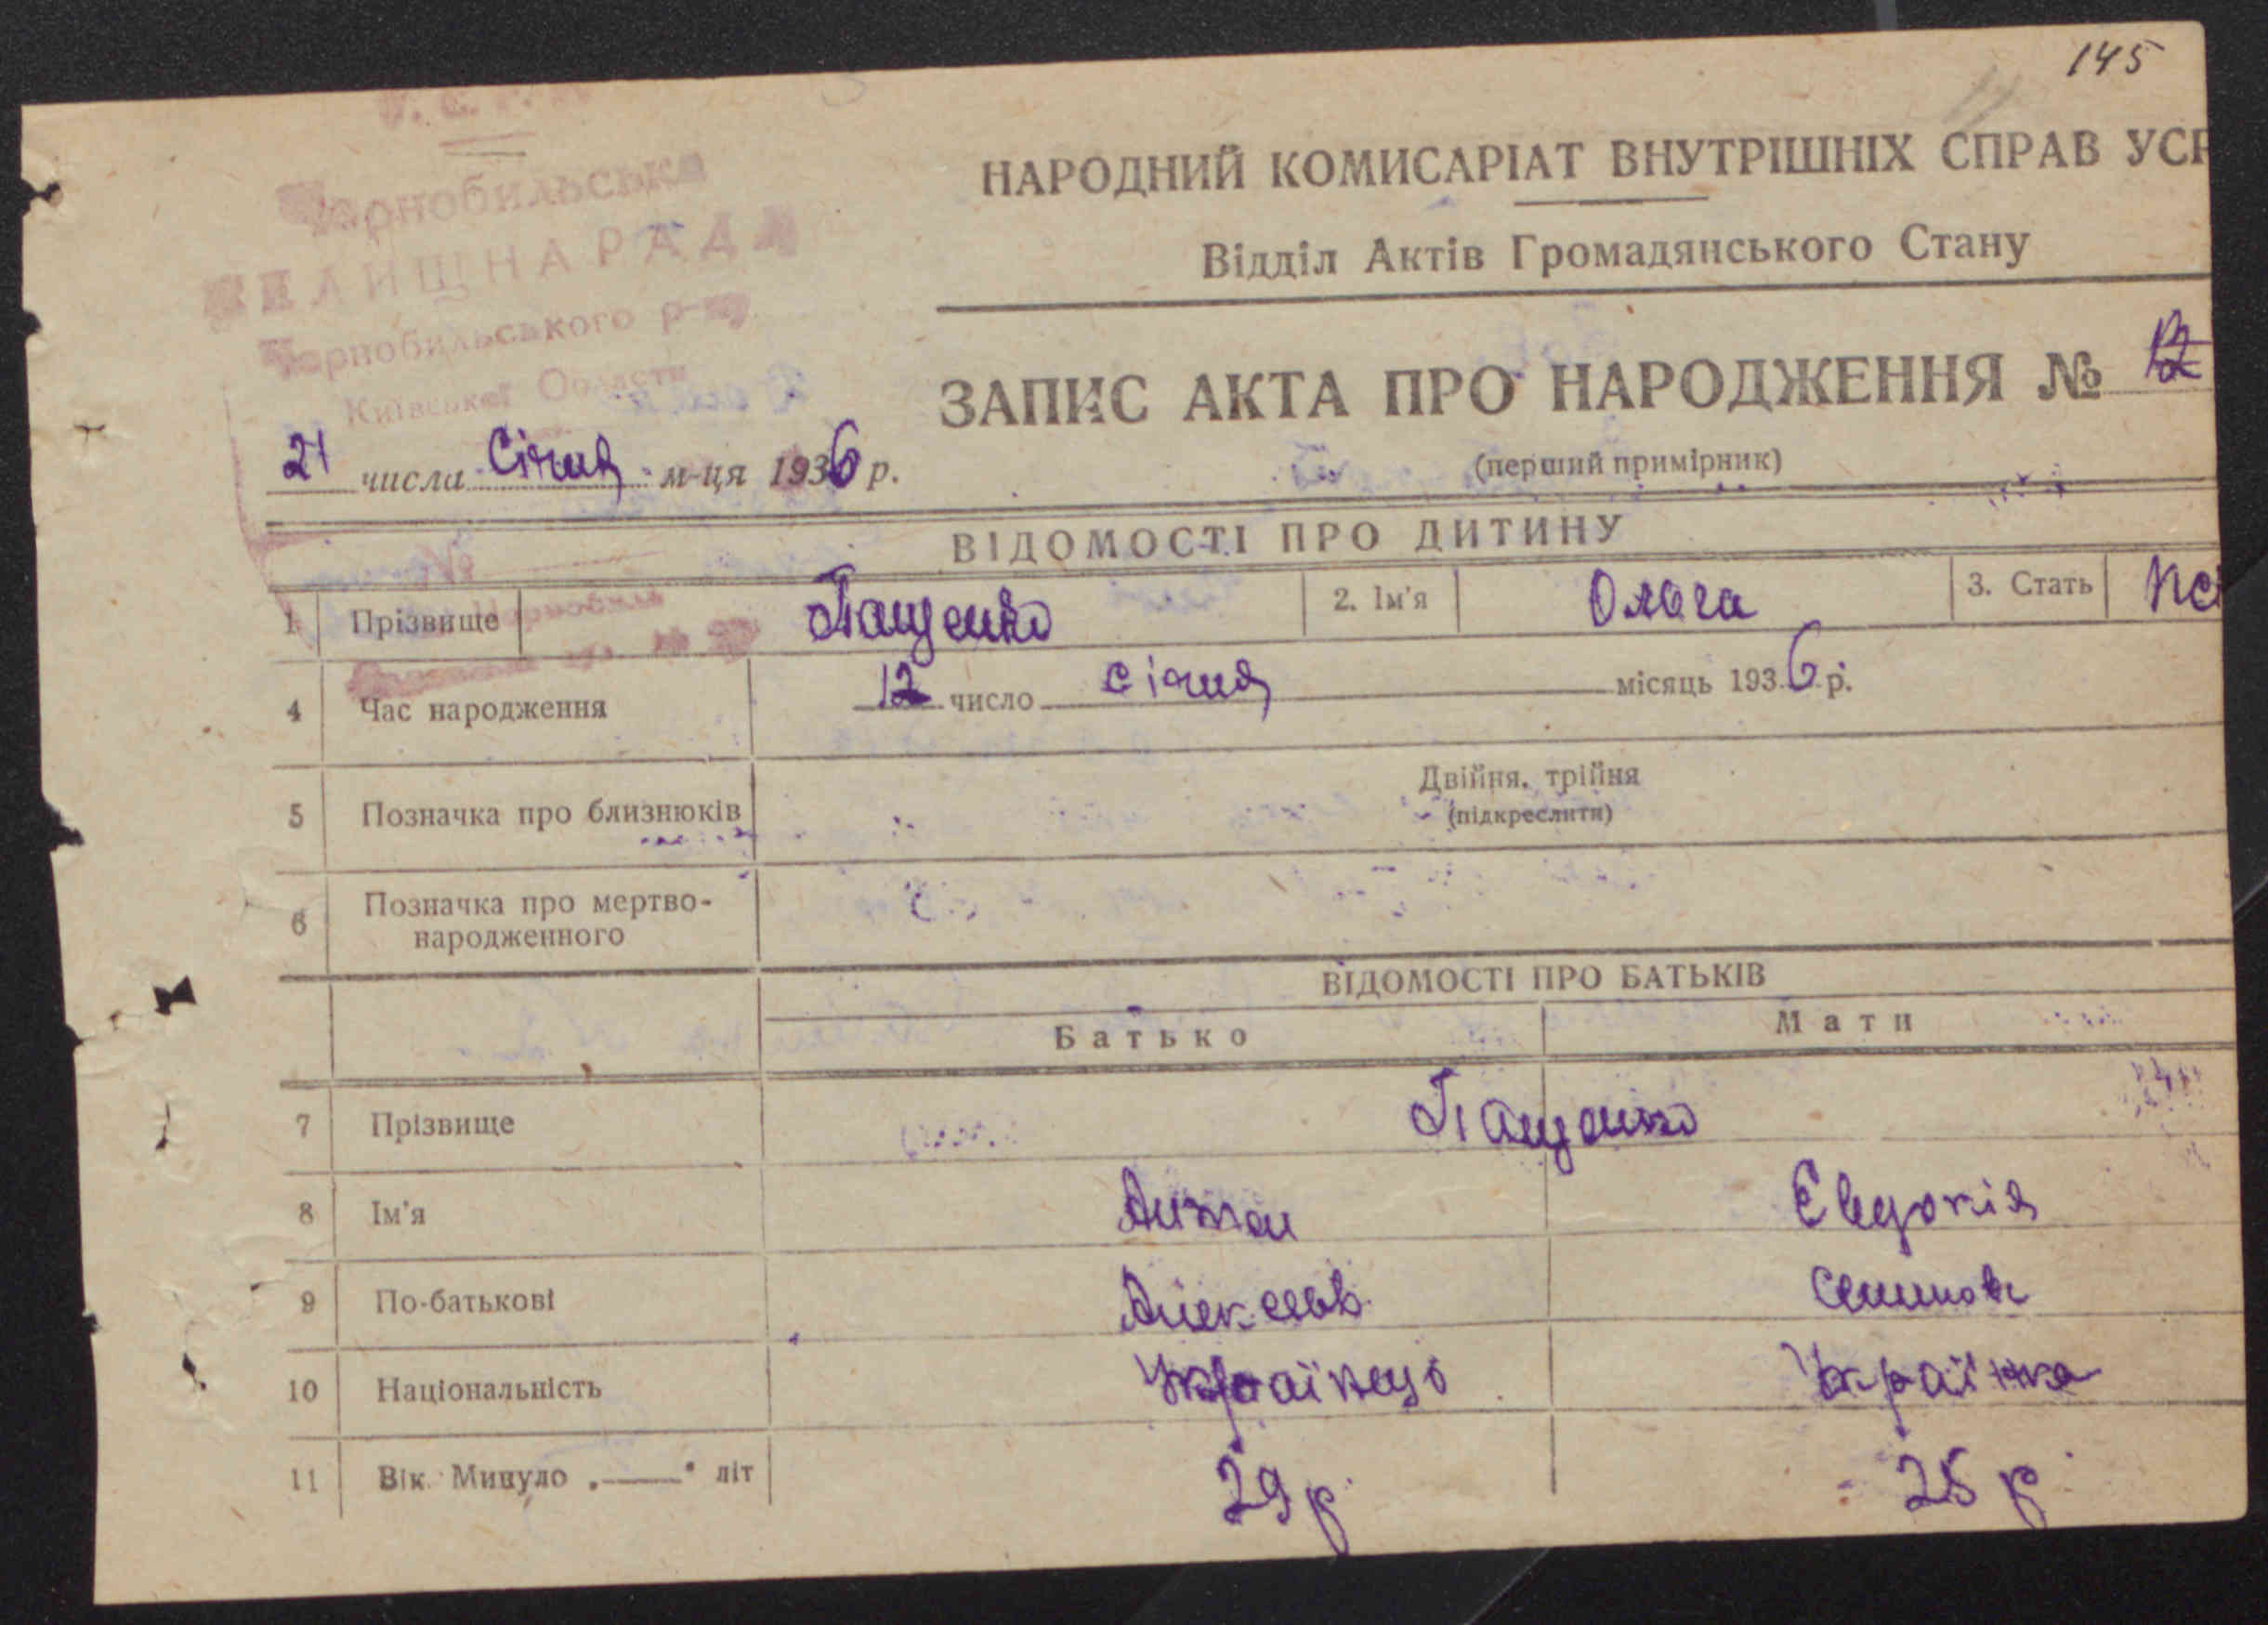 145
Чорнобильська
СЕЛИЩНА РАДА
Чорнобильського р-ну
Київської Области
НАРОДНИЙ КОМИСАРІАТ ВНУТРІШНІХ СПРАВ УСР
Відділ Актів Громадянського Стану
ЗАПИС АКТА ПРО НАРОДЖЕННЯ № 12
21 числа Січня м-ця 1936 р.
(перший примірник)
ВІДОМОСТІ ПРО ДИТИНУ
1 Прізвище Пащенко 2. Ім'я Ольга 3. Стать
4 Час народження 12 число січня місяць 1936 р.
5 Позначка про близнюків Двійня, трійня
(підкреслити)
6 Позначка про мертво-
народженного
ВІДОМОСТІ ПРО БАТЬКІВ
Батько Мати
7 Прізвище Пащенко
8 Ім'я Антон Евдокія
9 По-батькові Алексеев.
10 Національність Українець Українка
11 Вік. Минуло „—" літ 29 р. 25 р.